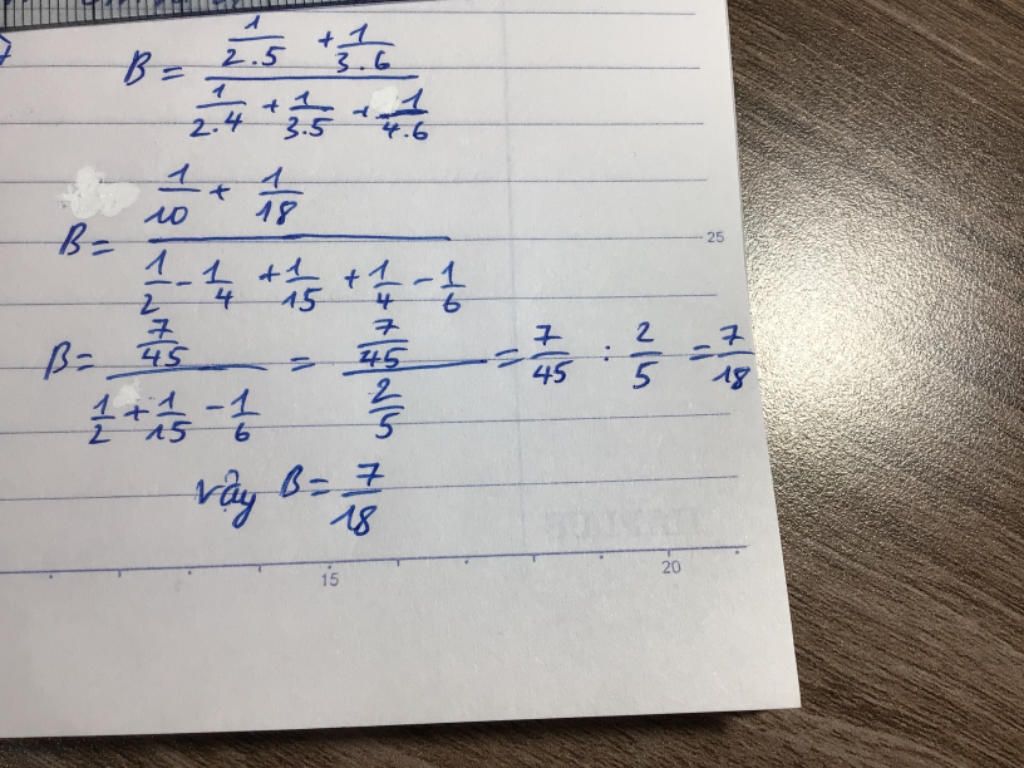 B = (1/2.5 + 1/3.6) / (1/2.4 + 1/3.5 + 1/4.6)
B = (1/10 + 1/18) / (1/2 - 1/4 + 1/15 + 1/4 - 1/6)
25
B = (7/45) / (1/2 + 1/15 - 1/6) = (7/45) / (2/5) = 7/45 : 2/5 = 7/18
vậy B = 7/18
15 20